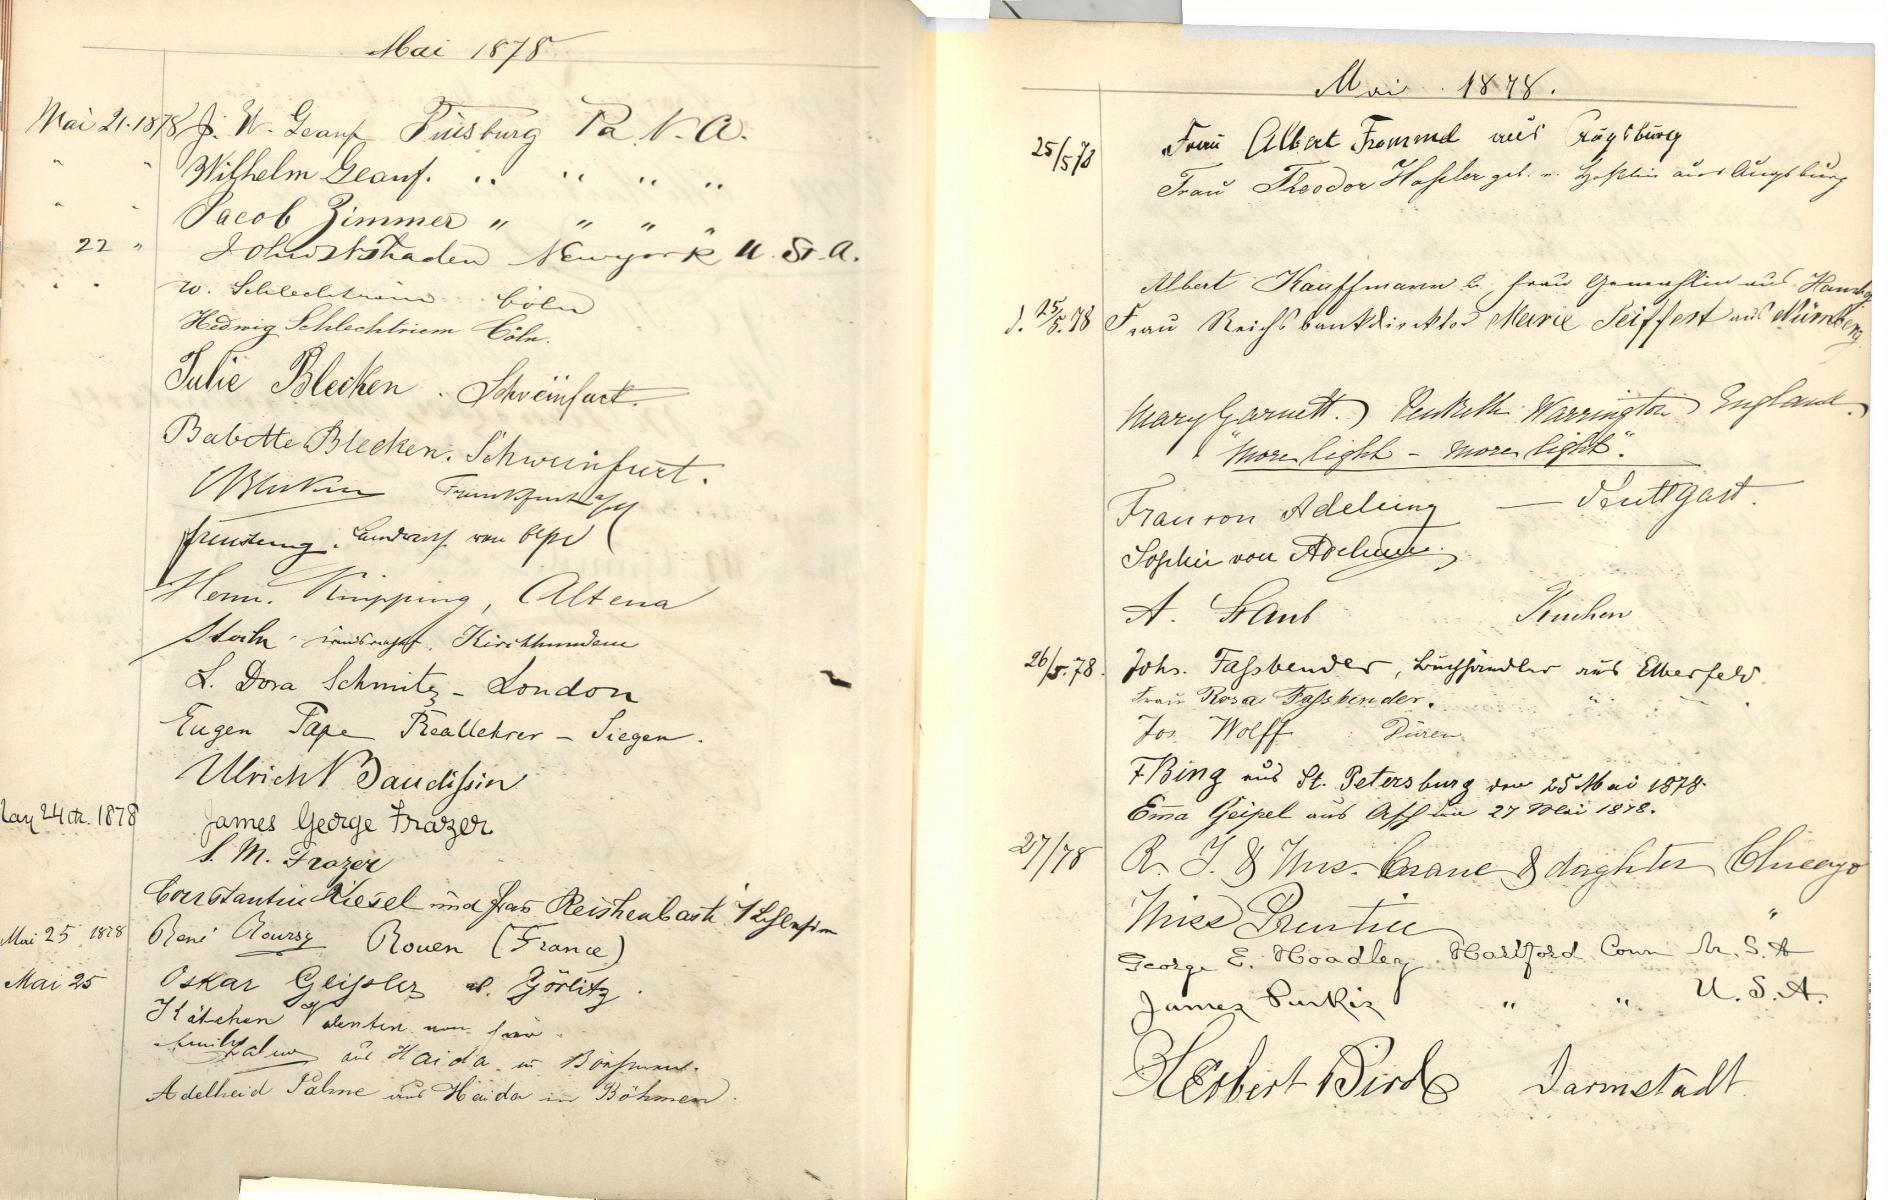 Mai 1878
Mai 21. 1878 J. W. Geanf Pittsburg Pa N. A.
" " Wilhelm Geanf. " " " "
" " Jacob Zimmer " " " "
22 " Newyork U. St. A.
" " W. Schlechtriem Cöln
Hedwig Schlechtriem Cöln.
Julie Blecken. Schweinfurt.
Babette Blecken. Schweinfurt.
Blecken Frankfurt a/M
Landwirth von
Herm. Knipping, Altena
Kirchhundem
L. Dora Schmitz - London
Eugen Pape Reallehrer - Siegen.
Ulrich Baudissin
May 24th. 1878 James George Frazer
S. M. Frazer
Constantin Kiesel und Frau Reichenbach i/Schlesien
Mai 25 1878 René Rouen (France)
Mai 25 Oskar Geissler a. Görlitz.
Kätchen Valentin von
Palme aus Haida in Böhmen.
Adelheid Palme aus Haida in Böhmen.
Mai 1878.
25/5 78 Frau Albert Frommel aus Augsburg
Frau Theodor Hassler geb. v. aus Augsburg
Albert Kauffmann & Frau Gemahlin aus Hambg
d. 25/5. 78 Frau Reichsbankdirektor Marie Seiffert aus Nürnberg.
Mary Garnett. Penketh Warrington England.
"More light - more light".
Frau von Adelung — Stuttgart.
Sophie von Adelung.
A. Staub Kuchen
26/5. 78. Johs. Fassbender, Buchhändler aus Elberfeld.
Frau Rosa Fassbender. " "
Jos. Wolff Düren
F Bing aus St. Petersburg den 25 Mai 1878.
Emma Geipel aus Asch den 27 Mai 1878.
27/78 R. T. & Mrs. Crane & daghter Chicago
Miss Prentice "
George E. Hoadley Hartford Conn U. S. A
James Purkis " " U. S. A.
Herbert Bird Darmstadt.